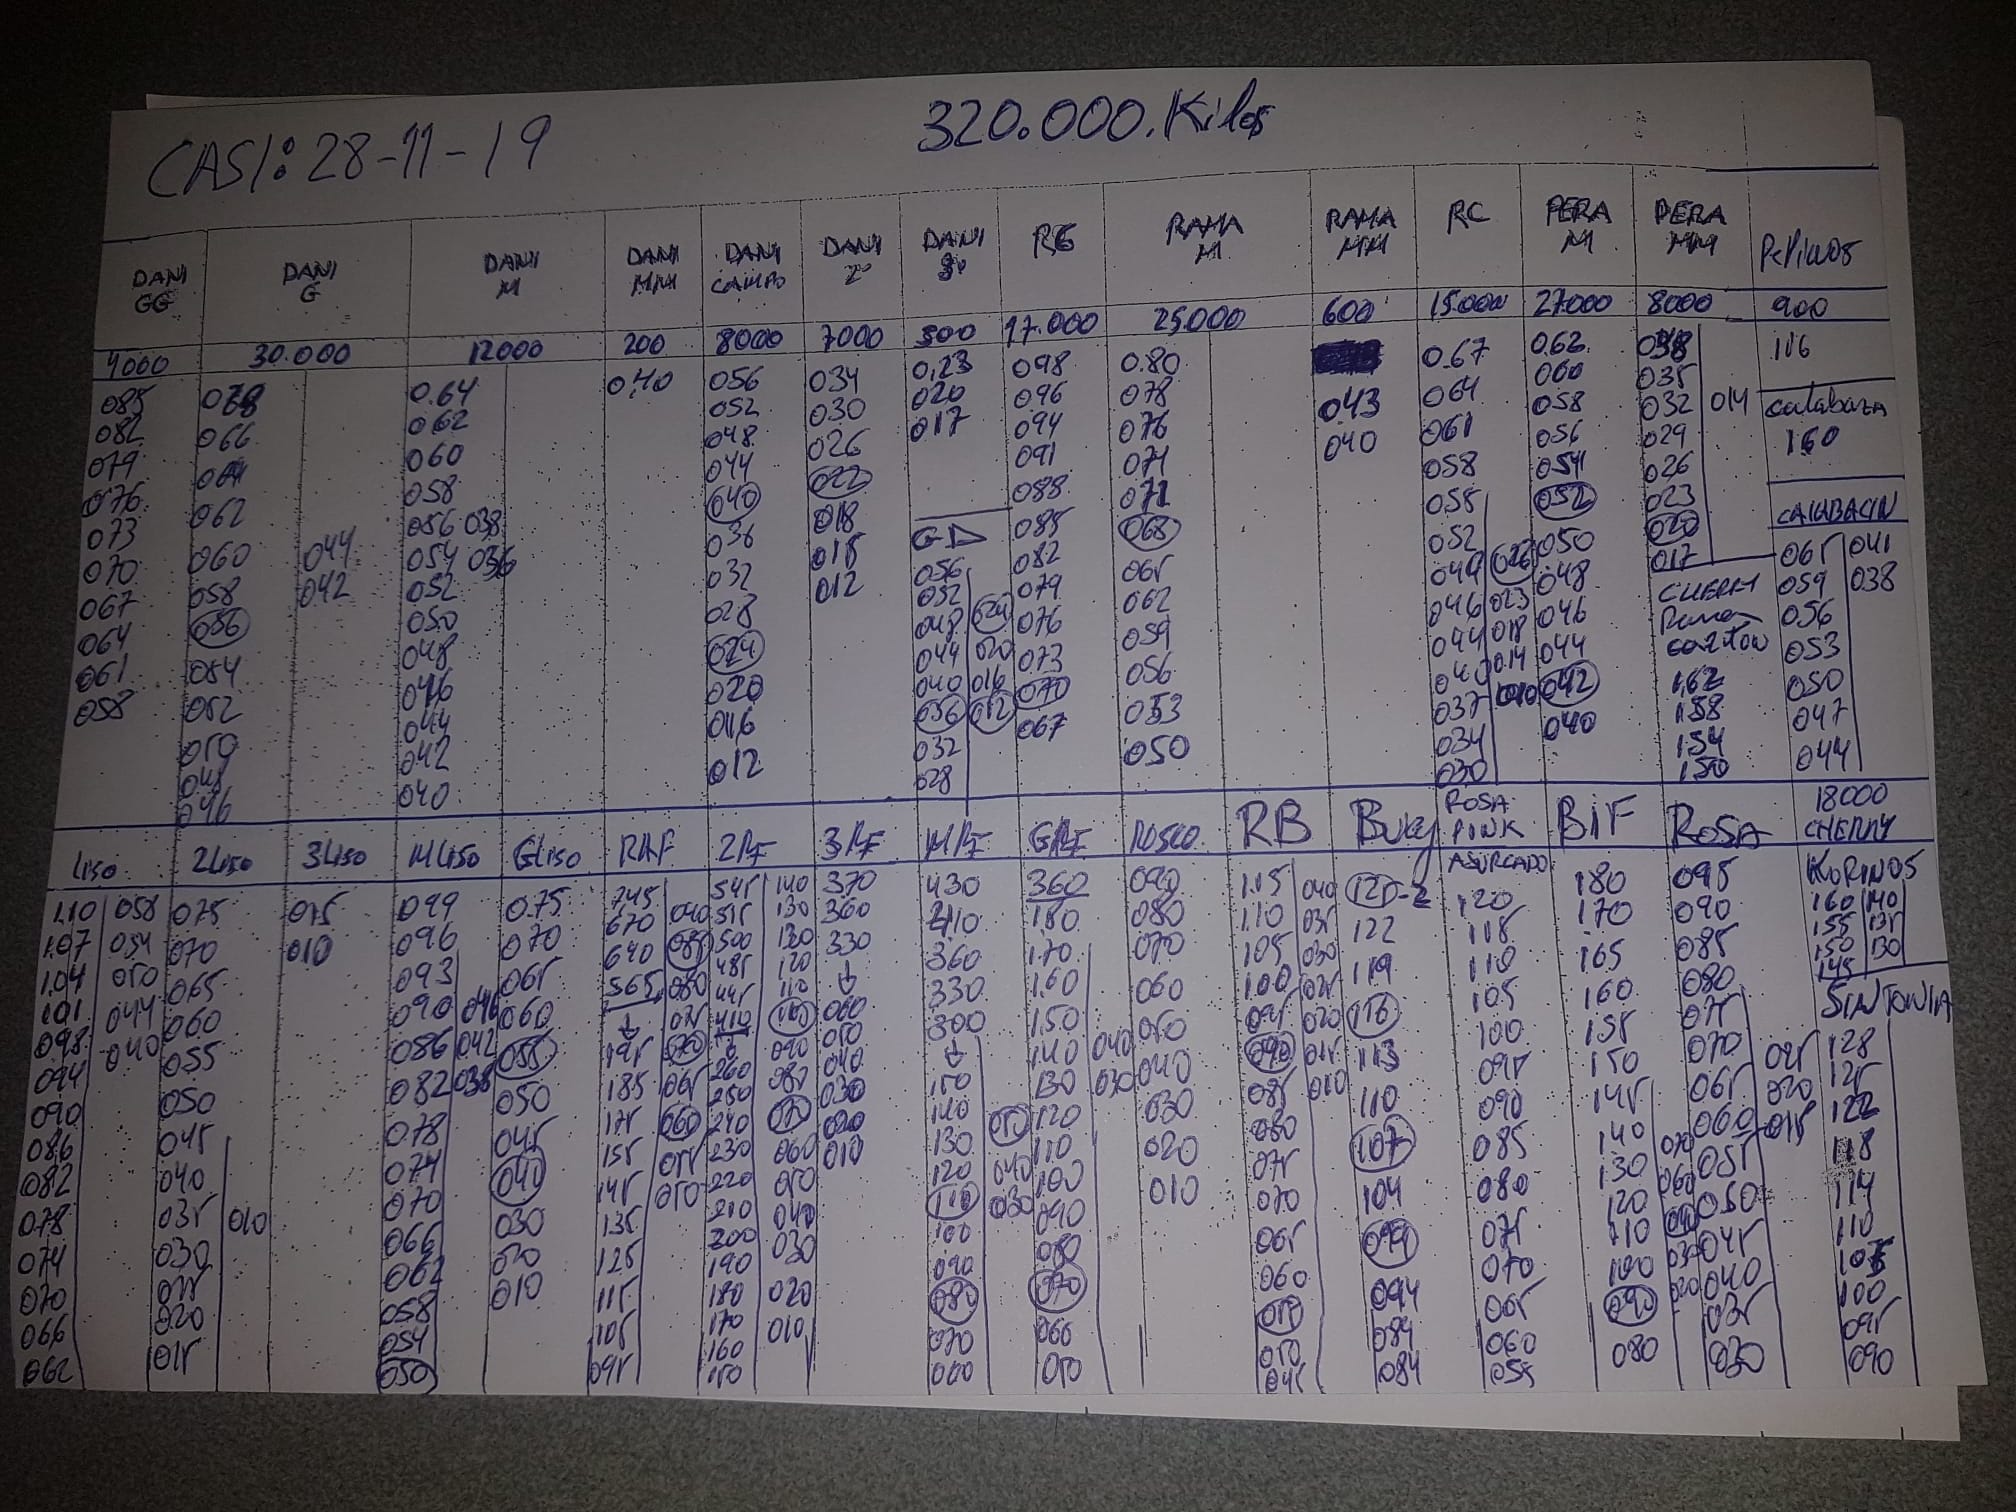 CASI: 28-11-19 320.000.Kilos
DANI GG DANI G DANI M DANI MM DANI CAMPO DANI 2ª DANI 3ª RG RAMA M RAMA MM RC PERA M PERA MM PEPINOS
4000 30.000 12000 200 8000 7000 300 17.000 25000 600 15.000 27000 8000 900
085 0.64 040 056 034 0,23 098 0.80 0.67 0.62 116
082 066 062 052 030 020 096 078 043 064 060 035 calabaza
079 064 060 048 026 017 094 076 040 061 058 032 014 160
076 062 058 044 022 091 074 058 056 029
073 060 044 056 038 040 018 088 071 055 054 026 CALABACIN
070 058 042 054 036 036 015 GD 085 068 052 052 023 065 041
067 056 052 032 012 056 082 065 049 026 050 020 059 038
064 054 050 028 052 079 062 046 023 048 017 056
061 052 048 024 048 024 076 059 044 018 046 CHERRY 053
058 050 046 020 044 020 073 056 040 014 044 Rama 050
048 044 016 040 016 070 053 037 010 042 1,62 047
046 042 012 036 012 067 050 034 040 1.58 044
040 032 030 1.54
028 1.50
LISO 2LISO 3LISO MLISO GLISO RAF 2RF 3RF MRF GRF ROSCO RB Bucy ROSA PINK ASURCADO BIF ROSA 18000 CHERRY KORINOS
1.10 058 075 015 099 0.75 745 545 140 370 430 360 090 1.15 040 125-2 120 180 095 160 140
1.07 054 070 010 096 070 670 090 515 130 360 410 180 080 1.10 035 122 115 170 090 155 135
1.04 050 065 093 065 640 085 500 120 330 360 1.70 070 105 030 119 110 165 085 150 130
101 044 060 090 046 060 565 080 485 120 ↓ 330 1.60 060 100 025 116 105 160 080 145
098 040 055 086 042 055 ↓ 075 445 110 060 300 1.50 050 095 020 113 100 155 075 SINTONIA
094 050 082 038 050 195 070 410 100 050 ↓ 140 040 040 090 015 110 095 150 070 025 128
090 045 078 045 185 065 ↓ 090 040 150 130 030 030 085 010 107 090 145 065 020 125
086 040 074 040 175 060 260 080 030 140 050 120 020 080 104 085 140 070 060 015 122
082 035 010 070 030 155 055 250 070 020 130 040 110 010 075 099 080 130 060 055 118
078 030 066 020 145 050 240 060 010 120 030 100 070 094 075 120 050 114
074 025 062 010 135 230 050 110 090 065 084 070 110 030 045 110
070 020 058 125 220 040 100 080 060 084 065 100 020 040 105
066 015 054 115 210 030 090 070 055 060 090 035 100
062 050 105 200 020 080 060 050 055 080 030 095
095 190 010 070 050 045 090
180 060
170
160
150